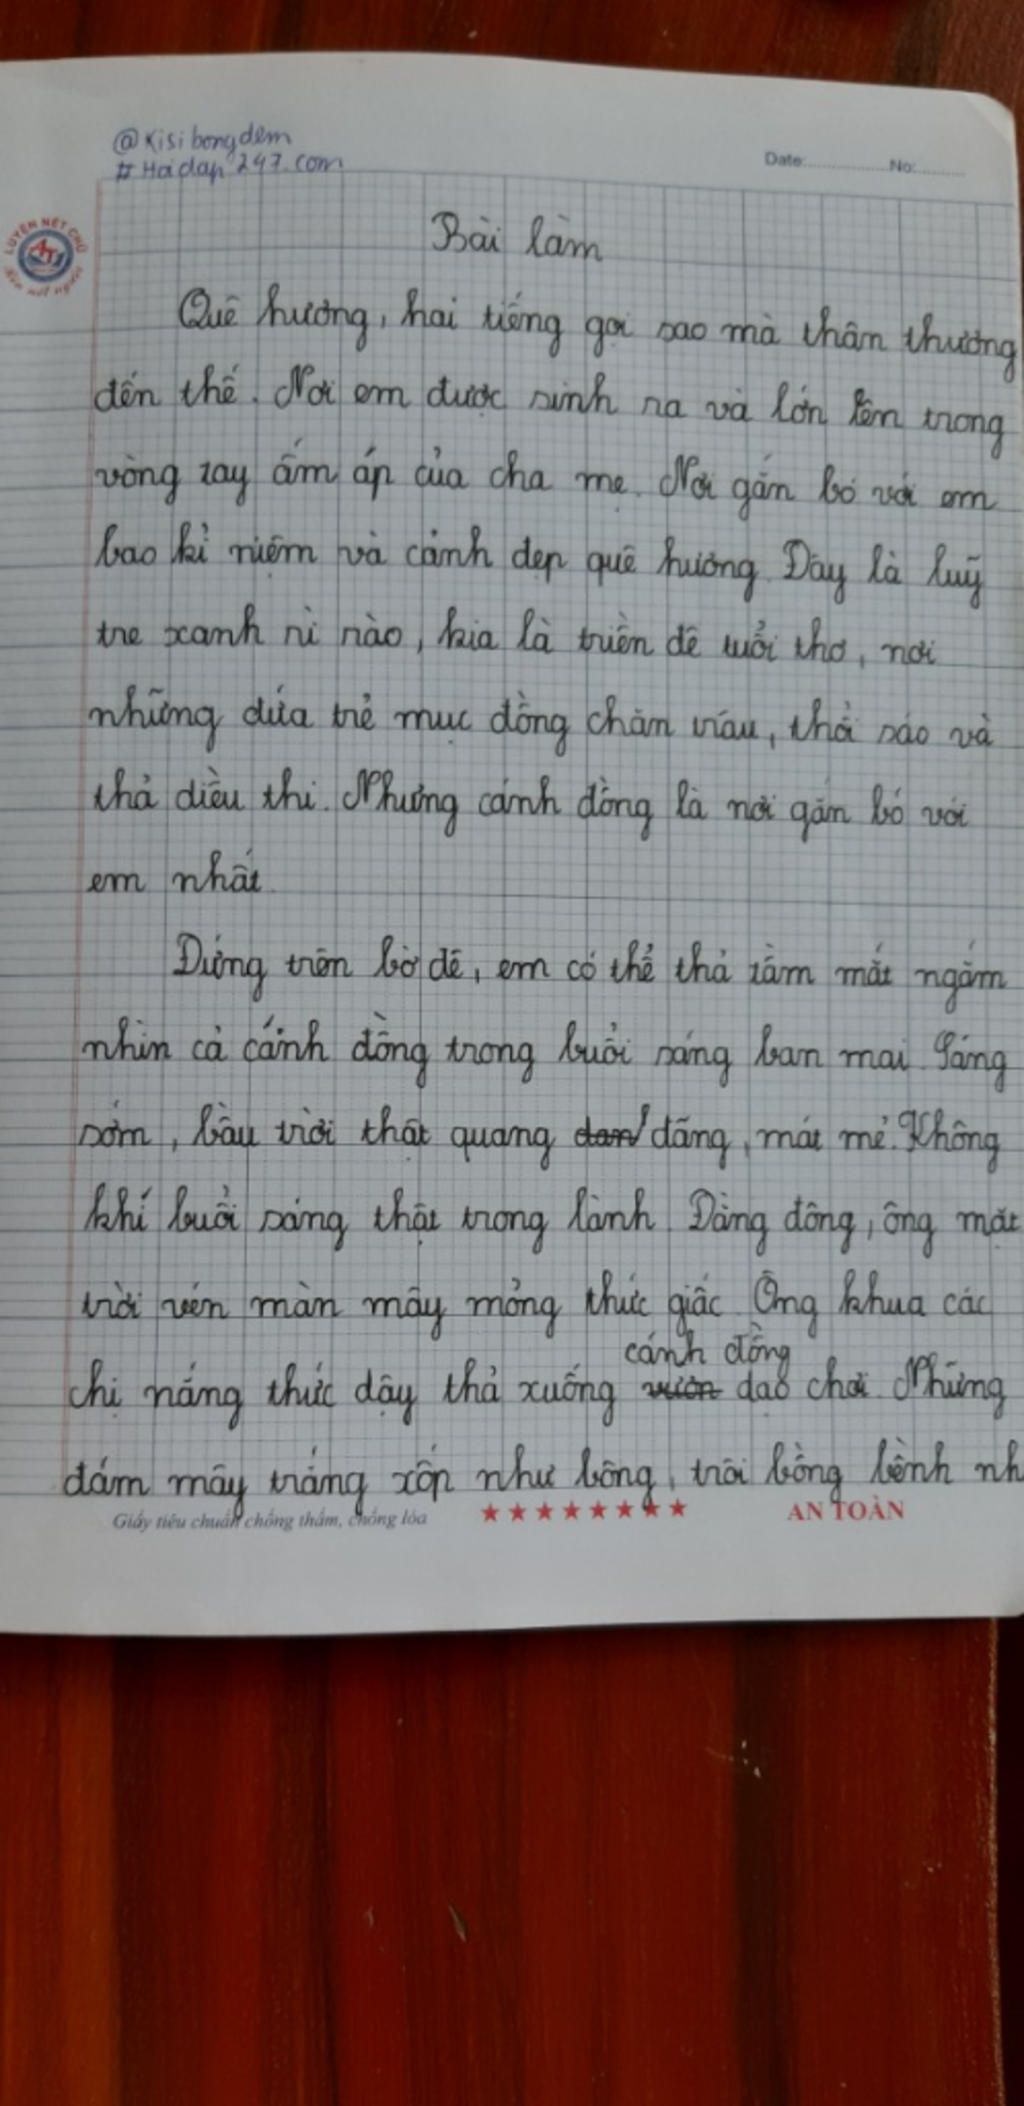 @Kisibongdem
#Hoidap247.com
Date:............... No:..........
LUYỆN NÉT CHỮ
Bài làm
Quê hương, hai tiếng gọi sao mà thân thương
đến thế. Nơi em được sinh ra và lớn lên trong
vòng tay ấm áp của cha mẹ. Nơi gắn bó với em
bao kỉ niệm và cảnh đẹp quê hương. Đây là luỹ
tre xanh rì rào, kia là triền đê tuổi thơ, nơi
những đứa trẻ mục đồng chăn trâu, thổi sáo và
thả diều thi. Nhưng cánh đồng là nơi gắn bó với
em nhất.
Đứng trên bờ đê, em có thể thả tầm mắt ngắm
nhìn cả cánh đồng trong buổi sáng ban mai. Sáng
sớm, bầu trời thật quang đãng, mát mẻ. Không
khí buổi sáng thật trong lành. Đằng đông, ông mặt
trời vén màn mây mỏng thức giấc. Ông khua các
chị nắng thức dậy thả xuống cánh đồng dạo chơi. Những
đám mây trắng xốp như bông, trôi bồng bềnh nh
Giấy tiêu chuẩn chống thấm, chống lóa
AN TOÀN